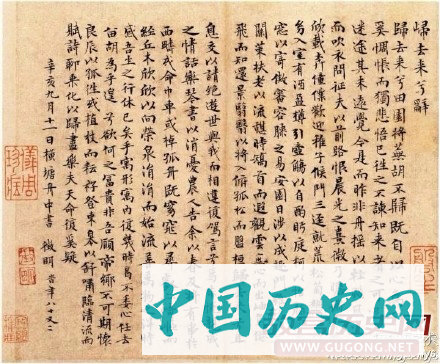 歸去來兮辭
歸去來兮田園將蕪胡不歸既自以
奚惆悵而獨悲悟已往之不諫知來者
迷途其未遠覺今是而昨非舟搖以
而吹衣問征夫以前路恨晨光之熹微乃
欣載奔僮僕歡迎稚子候門三逕就荒
幼入室有酒盈樽引壺觴以自酌眄庭柯
窗以寄傲審容膝之易安園日涉以成
關策扶老以流憩時矯首而遐觀雲無心
飛而知還景翳翳以將入撫孤松而盤桓
息交以請絕遊世與我而相遺復駕言兮
之情話樂琴書以消憂農人告余以春
西疇或命巾車或棹孤舟既窈窕以尋
經丘木欣欣以向榮泉涓涓而始流
感吾生之行休已矣乎寓形宇內復幾時曷不委心任去
留胡為乎遑遑兮欲何之富貴非吾願帝鄉不可期懷
良辰以孤往或植杖而耘耔登東皋以舒嘯臨清流而
賦詩聊乘化以歸盡樂夫天命復奚疑
辛亥九月十一日橫塘舟中書 徵明 時年八十又二
中国历史网
www.GUGONG.NET